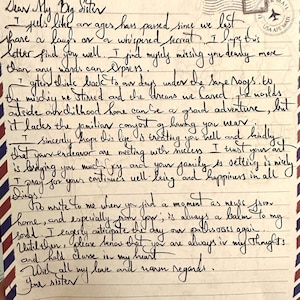 Dear My Big sister
I feels like an ages has passed since we last
share a laugh or a whispered secret. I hope this
letter find you well. I find myself missing you dearly more
than any words can express.
I often think back to our days under the same roofs. to
the mischief we stirred and the dreams we
outside our childhood home can be a grand adventure, but
it lacks the familiar comfort of having you near.
I sincerely hope this life is treating you well and kindly
that your endeavor are meeting with success. I trust your art
is bringing you much joy and your family is settling in nicely
I pray for your continues well-being and happiness in all
things.
Do write to me when you find a moment as news from
home, and especially from you, is always a balm to my
soul. I eagerly anticipate the day our paths cross again.
Until then, please know that you are always in my thoughts
and held close in my heart
With all my love and warm regards.
Your sister